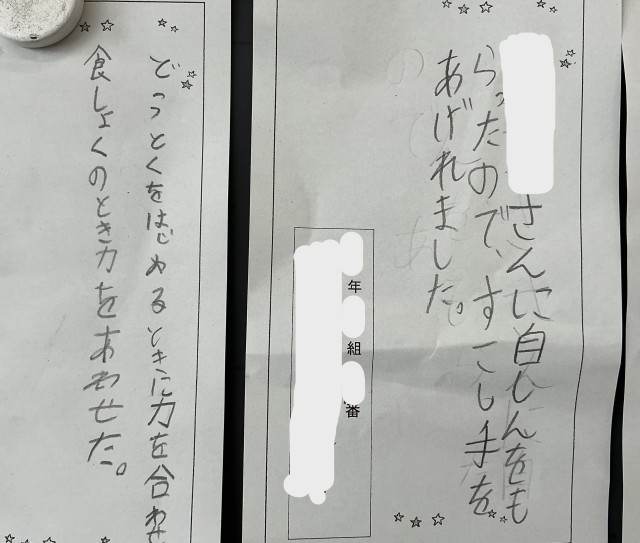 さんに自しんをも
らったのですこし手を
あげれました。
年 組 番
どっとくをはじめるときに力を合わせ
食しょくのとき力をあわせた。